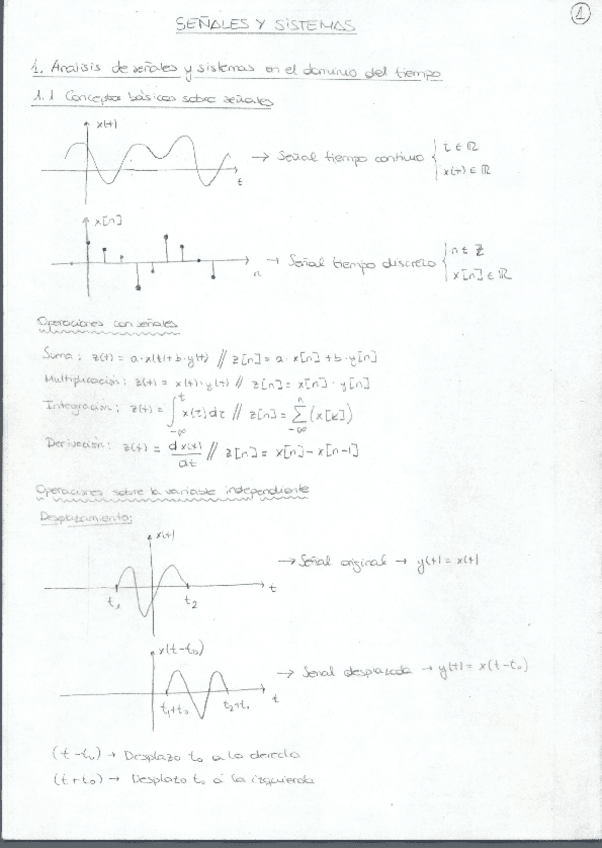 1
SEÑALES Y SISTEMAS
1. Análisis de señales y sistemas en el dominio del tiempo
1.1 Conceptos básicos sobre señales
x(t)
t
→ Señal tiempo continuo { t ∈ ℝ
x(t) ∈ ℝ
x[n]
n
→ Señal tiempo discreto { n ∈ Z
x[n] ∈ ℝ
Operaciones con señales
Suma: z(t) = a·x(t)+b·y(t) // z[n] = a·x[n]+b·y[n]
Multiplicación: z(t) = x(t)·y(t) // z[n] = x[n]·y[n]
Integración: z(t) = ∫_{-∞}^{t} x(τ)dτ // z[n] = ∑_{-∞}^{n} (x[k])
Derivación: z(t) = dx(t)/dt // z[n] = x[n]-x[n-1]
Operaciones sobre la variable independiente
Desplazamiento:
x(t)
t₁ t₂ t
→ Señal original → y(t) = x(t)
x(t-t₀)
t₁+t₀ t₂+t₀ t
→ Señal desplazada → y(t) = x(t-t₀)
(t-t₀) → Desplazo t₀ a la derecha
(t+t₀) → Desplazo t₀ a la izquierda